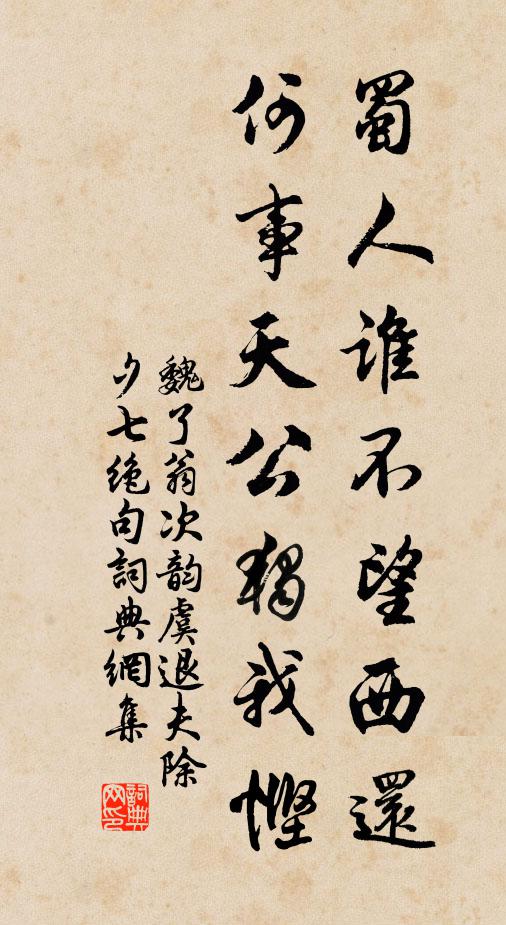 蜀人誰不望西還
何事天公獨我慳
魏了翁次韵虞退夫除
夕七絶句詞典網集
詞典
网印